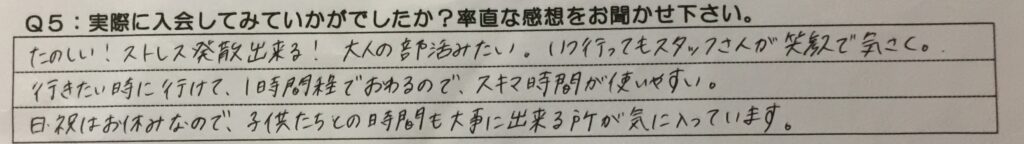 Q5：実際に入会してみていかがでしたか？率直な感想をお聞かせ下さい。
たのしい！ストレス発散出来る！ 大人の部活みたい。いつ行ってもスタッフさんが笑顔で気さく。
行きたい時に行けて、1時間程でおわるので、スキマ時間が使いやすい。
日・祝はお休みなので、子供たちとの時間も大事に出来る所が気に入っています。